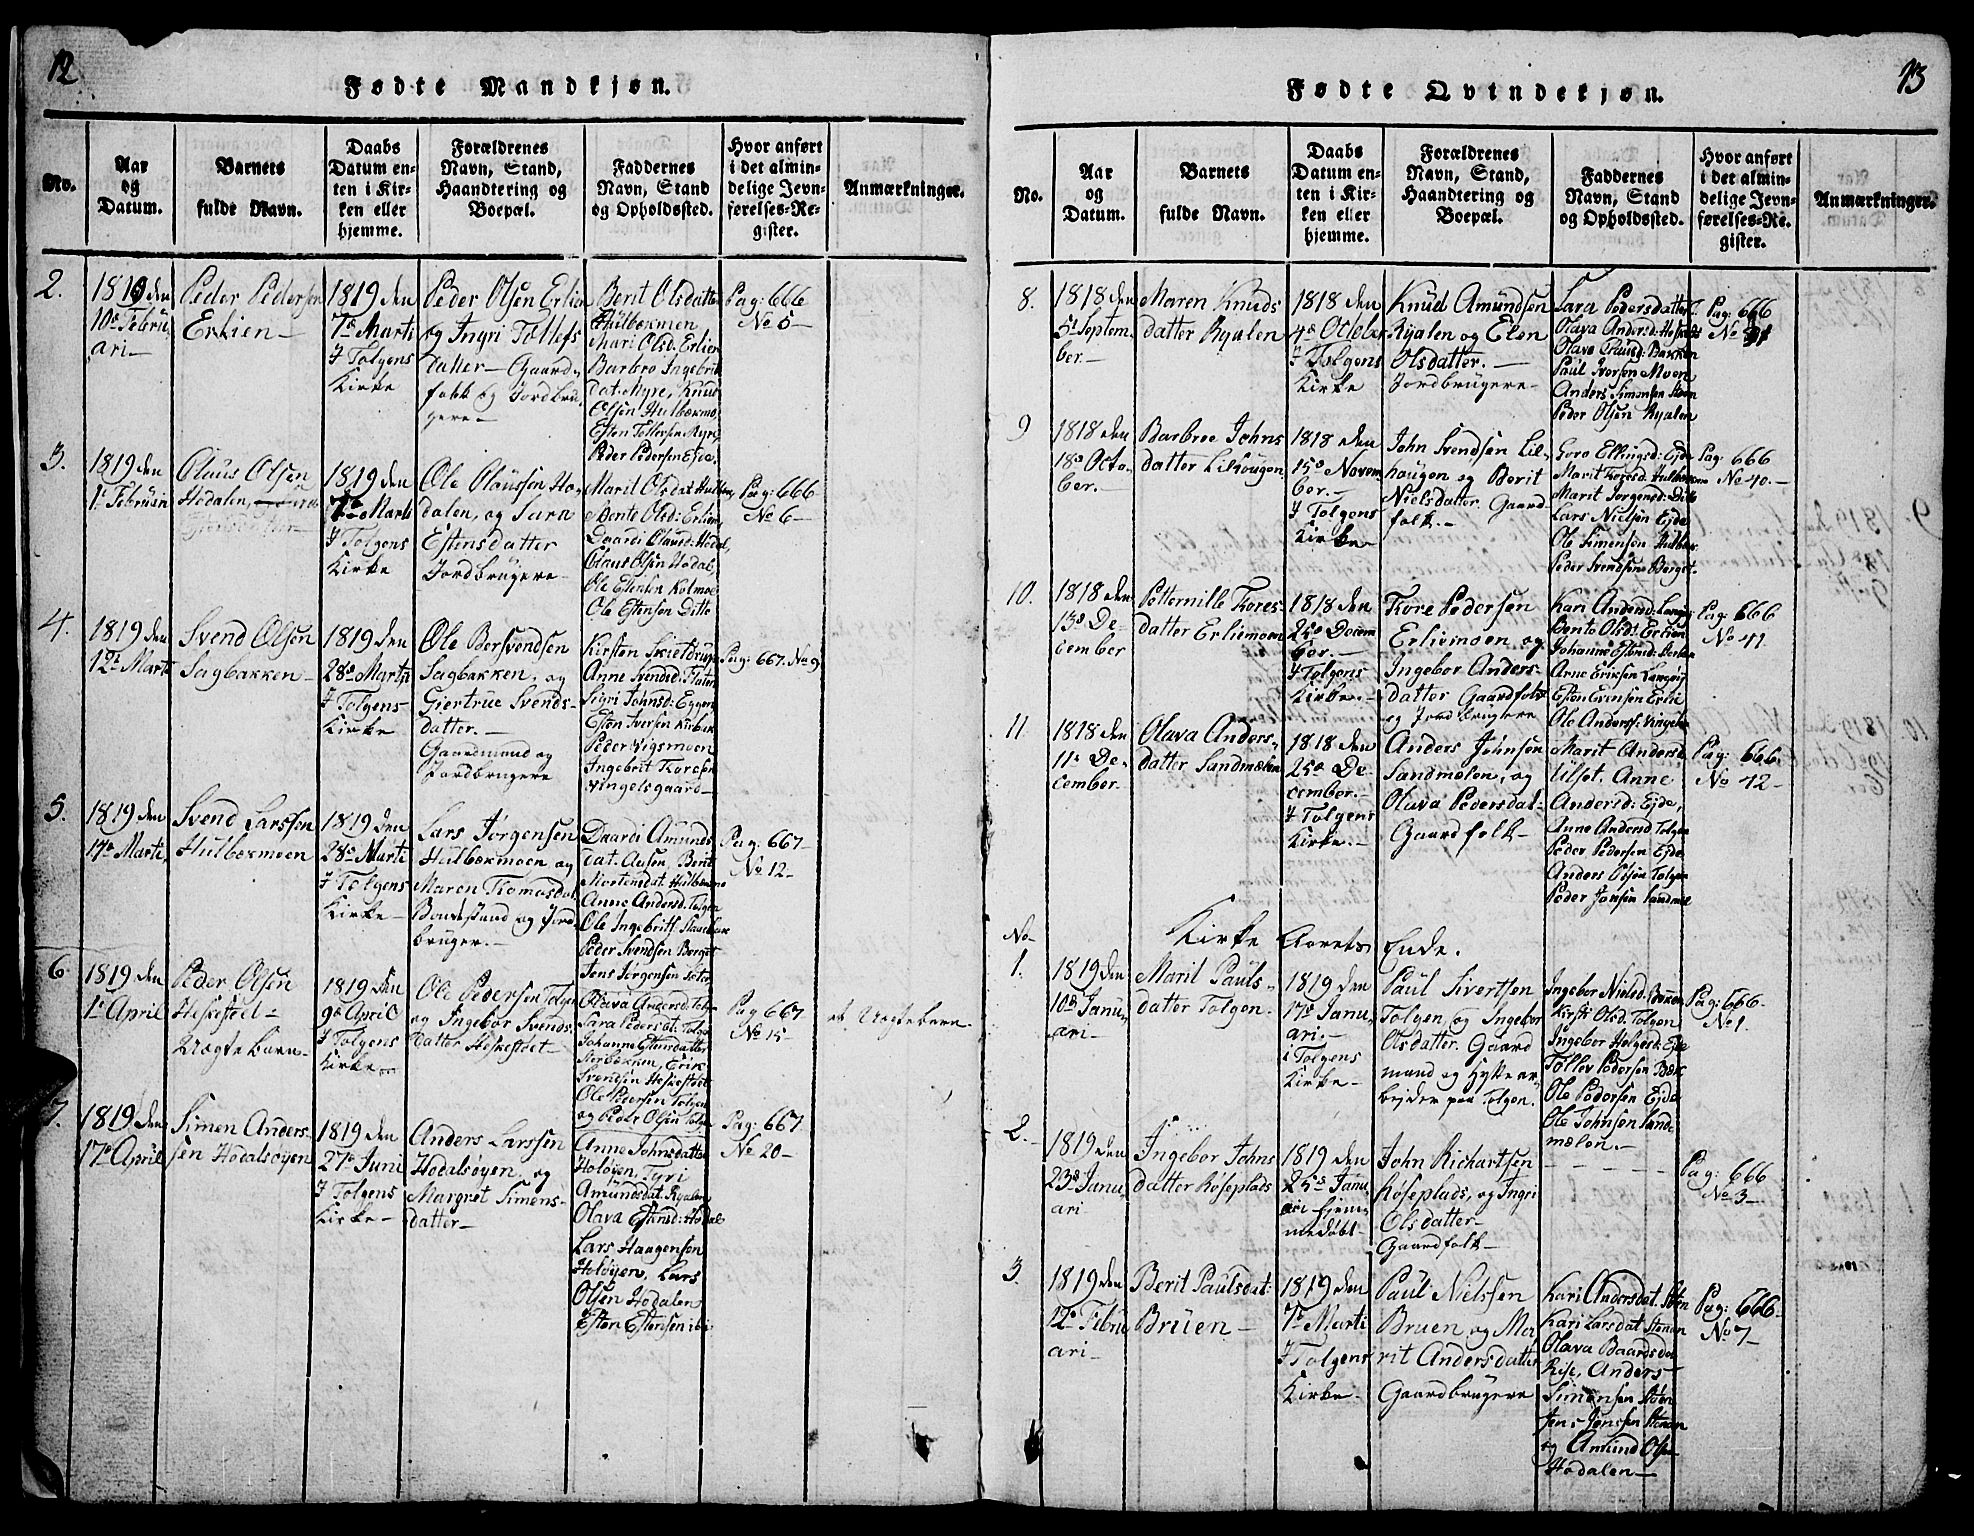 12
Fødte Mandkjøn.
No.
Aar
og
Datum.
Barnets
fulde Navn.
Daabs
Datum en-
ten i Kir-
ken eller
hjemme.
Forældrenes
Navn, Stand,
Haandtering og
Boepæl.
Faddernes
Navn, Stand
og Opholdssted.
Hvor anført
i det almin-
delige Jevn-
førelses-Re-
gister.
Anmærkninger.
2.
1819 den
10de Febru
ari—
Peder Pedersen
Erlien—
1819 den
7de Marti
I Tolgens
Kirke
Peder Olsen Erlien
og Ingri Tollefs
datter— Gaard-
folk og Jordbru-
gere—
Berit Olsdatter
Hulbekmoen
Mari Olsd: Erlien
Barbro Ingebrit
dat: Myre, Knud
Olsen Hulbekmo
Esten Tollevsen Myre
Peder Pedersen Eide.
Pag: 666
No 5—
3.
1819 den
1te Februari
Olaus Olsen
Hodalen,
1819 den
7de Marti
I Tolgens
Kirke
Ole Olaussen Ho-
dalen, og Sara
Estensdatter
Jordbrugere—
Marit Olsdat Hulbek
Bente Olsd: Erlien,
Daardi Olausd: Hodal,
Claus Olsen Hodal,
Ole Estensen Kolmoe
Ole Estensen Ditto
Pag: 666
No 6—
4.
1819 den
12te Marti
Svend Olsen
Sagbakken—
1819 den
28de Martii
I Tolgens-
Kirke
Ole Bersvendsen
Sagbakken, og
Giertrue Svends-
datter.—
Gaardmand og
Jordbrugere
Kirsten
Anne Svendsd: Flaten
Sigri Johnsd: Eggen
Esten Iversen Kirkbek
Peder Vigsmoen
Ingebrit Toresen
Vingelsgaard—
Pag: 667. No 9
5.
1819 den
17de Marti,
Svend Larssen
Hulbekmoen
1819 den
28de Marti
I Tolgens
Kirke—
Lars Jørgensen
Hulbekmoen og
Maren Thomasdat,
Bondestand og Jord-
bruger.—
Daardi Amunds
dat. Aasen, Berit
Mortensdat: Hulbekmo
Anne Andersd: Tolgen
Ole Ingebritss
Peder Svendsen Berget
Jens Jørgensen
Pag: 667—
No 12—
6.
1819 den
1te April
Peder Olsen
Heskestoel—
Uægte barn—
1819 den
9de April
I Tolgens
Kirke—
Ole Pedersen Tolgen
og Ingebor Svends
datter Heskestoel—
Olava Andersd: Tol-
Sara Pedersdt: Tolge
Johanne Estensdatter
Storbekken, Erik
Svendsen Heskestoel
Ole Pedersen Tolgen
og Peder Olsen Tolge
Pag 667
No 15—
et Uægte barn—
7.
1819 den
17de April
Simen Anders-
sen Hodalsøyen
1819 den
27de Juni
I Tolgens
Kirke—
Anders Larssen
Hodalsøyen, og
Margret Simens-
datter—
Anne Johnsdatter
Holøyen, Tyri
Amundsdat. Ryalen
Olava Estensd: Hodal
Lars Haagensen
Holøyen, Lars
Olsen Hodalen
Esten Estensen ibi
Pag: 667.
No 20—
13
Fødte Qvindekjøn.
No.
Aar
og
Datum.
Barnets
fulde Navn.
Daabs
Datum en-
ten i Kir-
ken eller
hjemme.
Forældrenes
Navn, Stand,
Haandtering og
Boepæl.
Faddernes
Navn, Stand
og Opholdssted.
Hvor anført
i det almin-
delige Jevn-
førelses-Re-
gister.
Anmærkninger.
8.
1818 den
5te Septem-
ber.—
Maren Knuds
datter Ryalen
1818 den
4de October
I Tolgens
Kirke
Knud Amundsen
Ryalen og Elen
Olsdatter.—
Jordbrugere—
Sara Pedersdatter
Olava Andersd: Heskest
Olava Paulsd: Bakken
Paul Iversen Moen
Anders Simensen Steen
Peder Olsen Ryalen
Pag: 666
No
9
1818 den
18de Octo-
ber.—
Barbroe Johns
datter Lilhougen
1818 den
15de Novem
ber.—
I Tolgens
Kirke—
John Svendsen Lil-
haugen og Berit
Nielsdatter. Gaard
folk.—
Goro Ellingsd: Eide
Marit Toresd: Hulbekmoe
Marit Jørgensd: Ditto
Lars Nielsen Eide
Ole Simensen Hulbek
Peder Svendsen Berget.
Pag: 666
No 40.—
10.
1818 den
13de De-
cember
Petternille Tores-
datter Erliemoen
1818 den
25de Decem
ber.—
I Tolgens
Kirke.—
Tore Pedersen
Erlivmoen, og
Ingebor Anders-
datter Gaardfolk
og Jordbrugere
Kari Andersd: Langøy
Bente Olsd: Erlien
Johanne Estensd:
Arne Eriksen Langøy
Esten Evensen Erli
Ole Anderss: Vingelen
Pag: 666
No 41.
11
1818 den
11te De-
cember.
Olava Anders-
datter Sandmælen
1818 den
25de De-
cember.—
I Tolgens
Kirke.—
Anders Johnsen
Sandmelen, og
Olava Pedersdat-
Gaardfolk—
Marit Andersd
Lilset, Anne
Andersd: Eide,
Anne Andersd Tolgen
Peder Pedersen Eide
Anders Olsen Tolgen
Peder Jonsen Sandmel
Pag: 666.
No 42—
No—
Kirke Aarets Ende.
1.
1819 den
10de Janu-
ari—
Marit Pauls-
datter Tolgen—
1819 den
17de Janu-
ari.—
i Tolgens
Kirke—
Paul Sivertsen
Tolgen, og Ingebor
Olsdatter. Gaard
mand og Hytte ar-
bejder paa Tolgen.
Ingebor Nielsd:
Kirsti Olsd. Tolgen
Ingebor Helgesd: Eide
Tollev Pedersen Bek
Ole Pedersen Eide
Ole Johnsen Sand-
mælen.—
Pag: 666—
No 1.
2.
1819 den
23de Janu-
ari
Ingebor Johns
datter Røseplads
1819 den
25de Janu
ari hjem-
medøbt—
John Richartsen
Røseplads, og Ingri
Olsdatter—
Gaardfolk—
Pag: 666
No 3—
3.
1819 den
12te Febru
ari—
Berit Paulsdat:
Bruen—
1819 den
7de Marti
I Tolgens
Kirke—
Paul Nielssen
Bruen og Ma
rit Andersdatter
Gaardbrugere
Kari Andersdat. Steen
Kari Larsdat Stenen
Olava Baardsda
Rise, Anders—
Simensen Steen
Jens Jenssen Stenen
og Amund Olsen
Hodalen—
Pag: 666—
No 7—